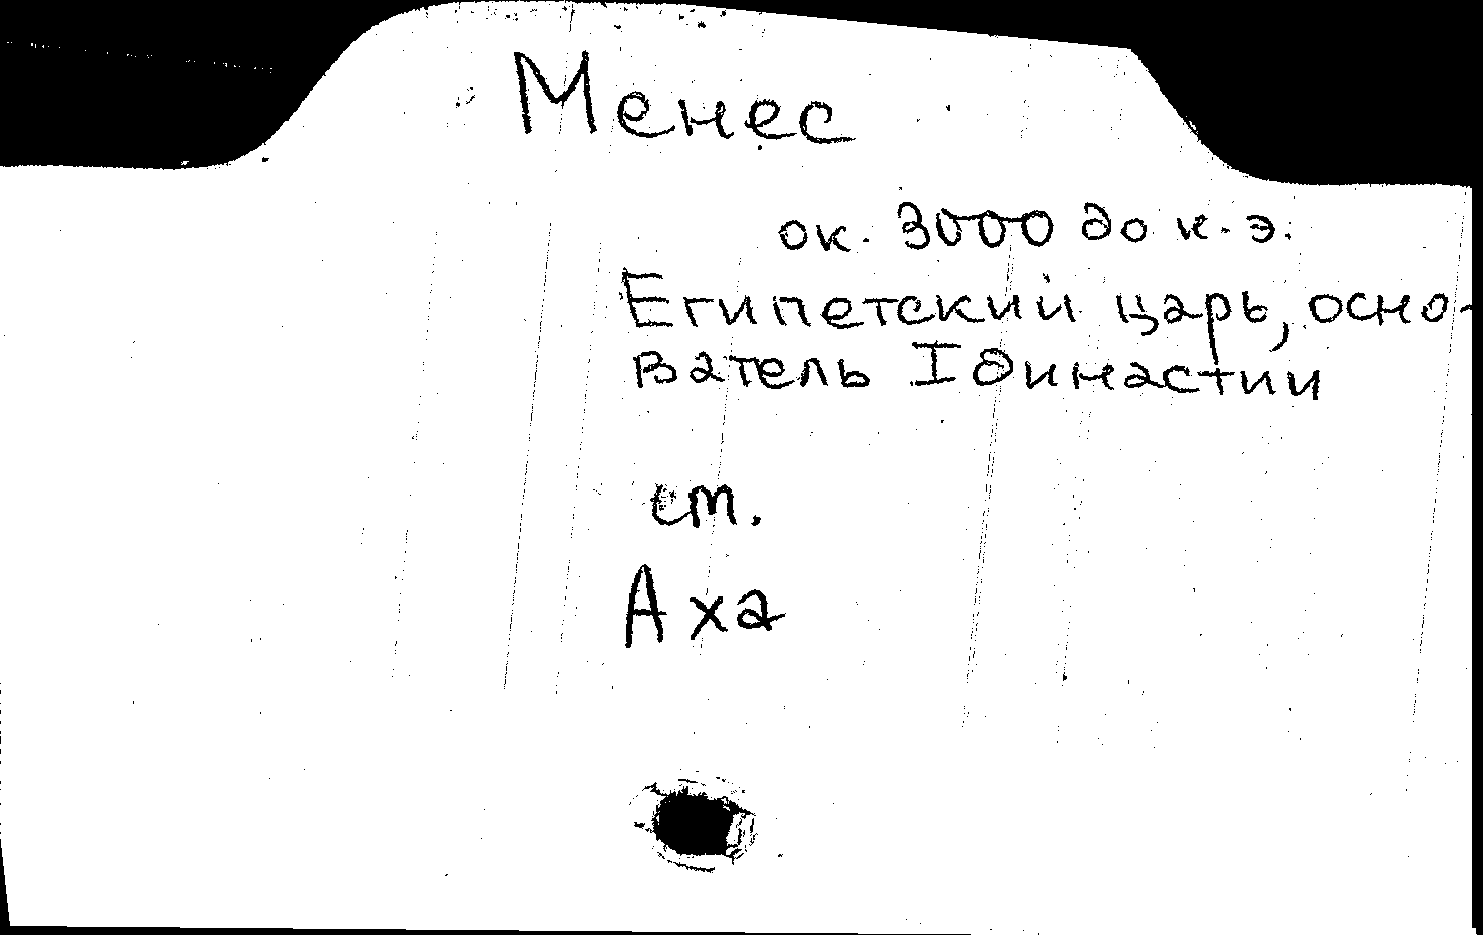 Менес
ок. 3000 до н.э.
Египетский царь, осно-
ватель I династии
ст.
Аха